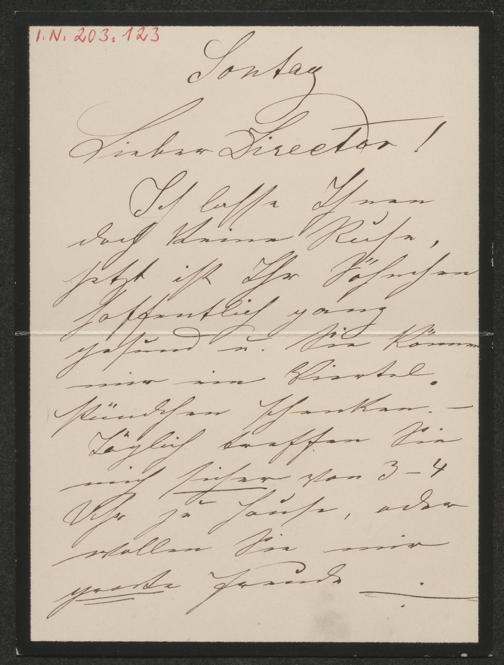 I.N. 203.123
Sontag
Lieber Director!
Ich lasse Ihnen
doch keine Ruhe,
jetzt ist Ihr Söhnchen
hoffentlich ganz
gesund u. Sie können
mir ein Viertel
stündchen schenken. –
Täglich treffen Sie
mich sicher von 3–4
Uhr zu Hause, oder
wollen Sie mir
große Freude —